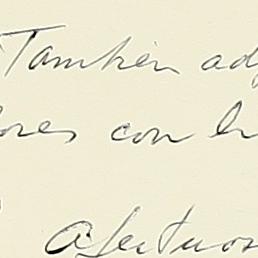 Tambien ad
ores con
Afectuos